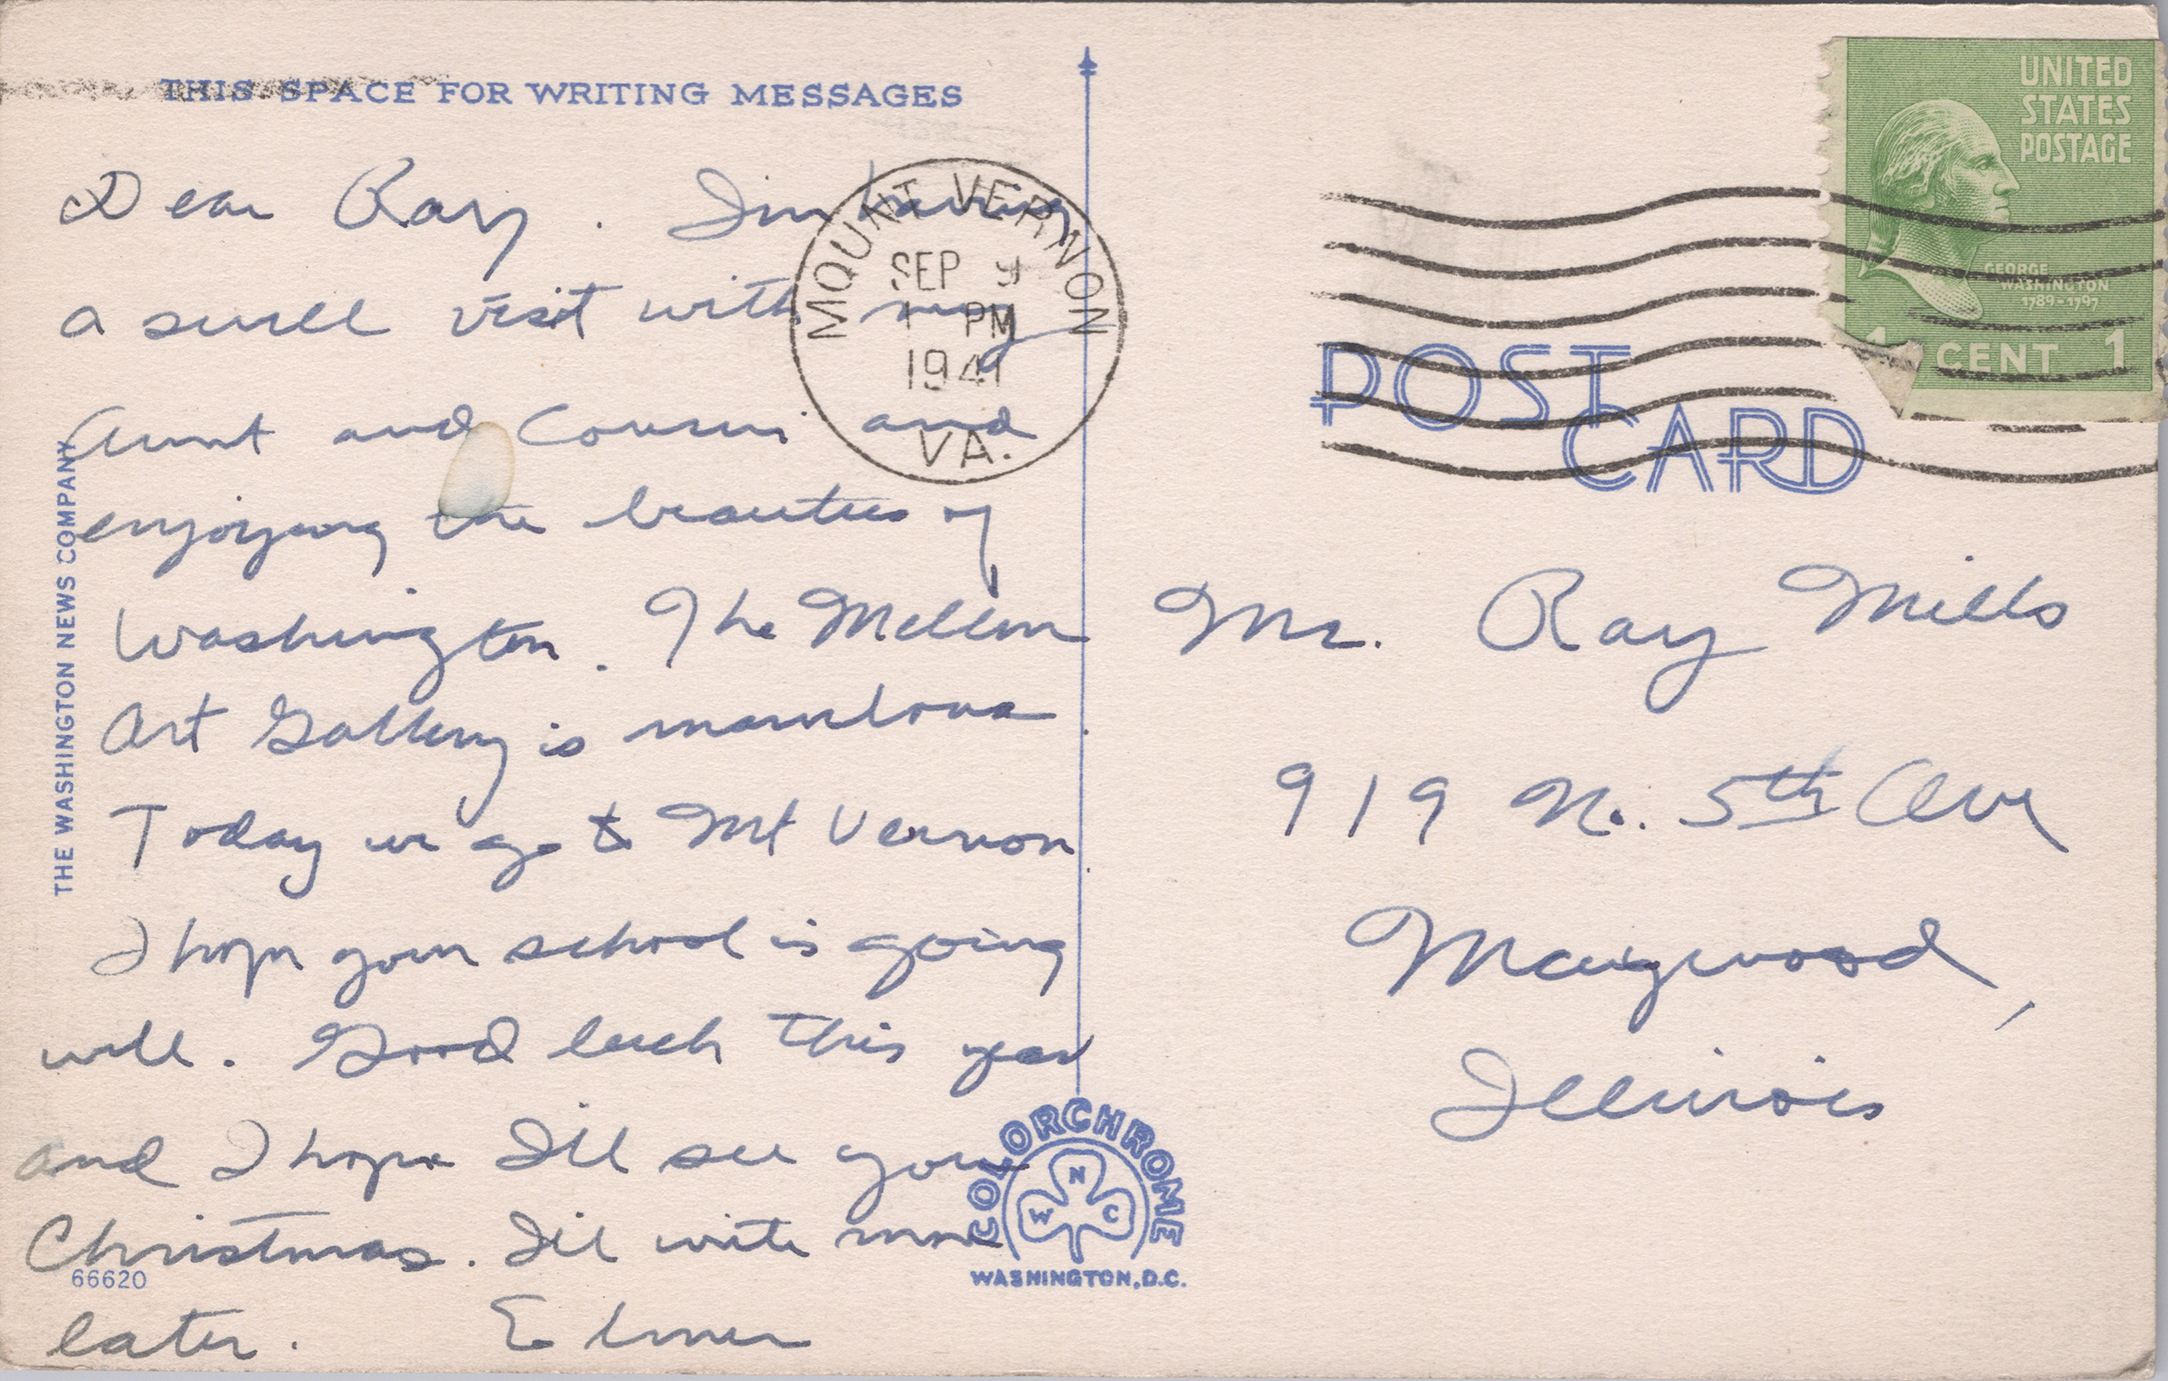 THIS SPACE FOR WRITING MESSAGES
Dear Ray. I'm having
a swell visit with my
Aunt and Cousin and
enjoying the beauties of
Washington. The Mellon
Art Gallery is marvelous
Today we go to Mt Vernon
I hope your school is going
well. Good luck this year
and I hope I'll see you
Christmas. I'll write more
later. Elmer
66620
THE WASHINGTON NEWS COMPANY
MOUNT VERNON
SEP 9
1 PM
1941
VA.
UNITED
STATES
POSTAGE
GEORGE
WASHINGTON
1789-1797
1 CENT 1
POST
CARD
Mr. Ray Mills
919 N. 5th Ave
Maywood,
Illinois
COLORCHROME
N
W C
WASHINGTON, D.C.